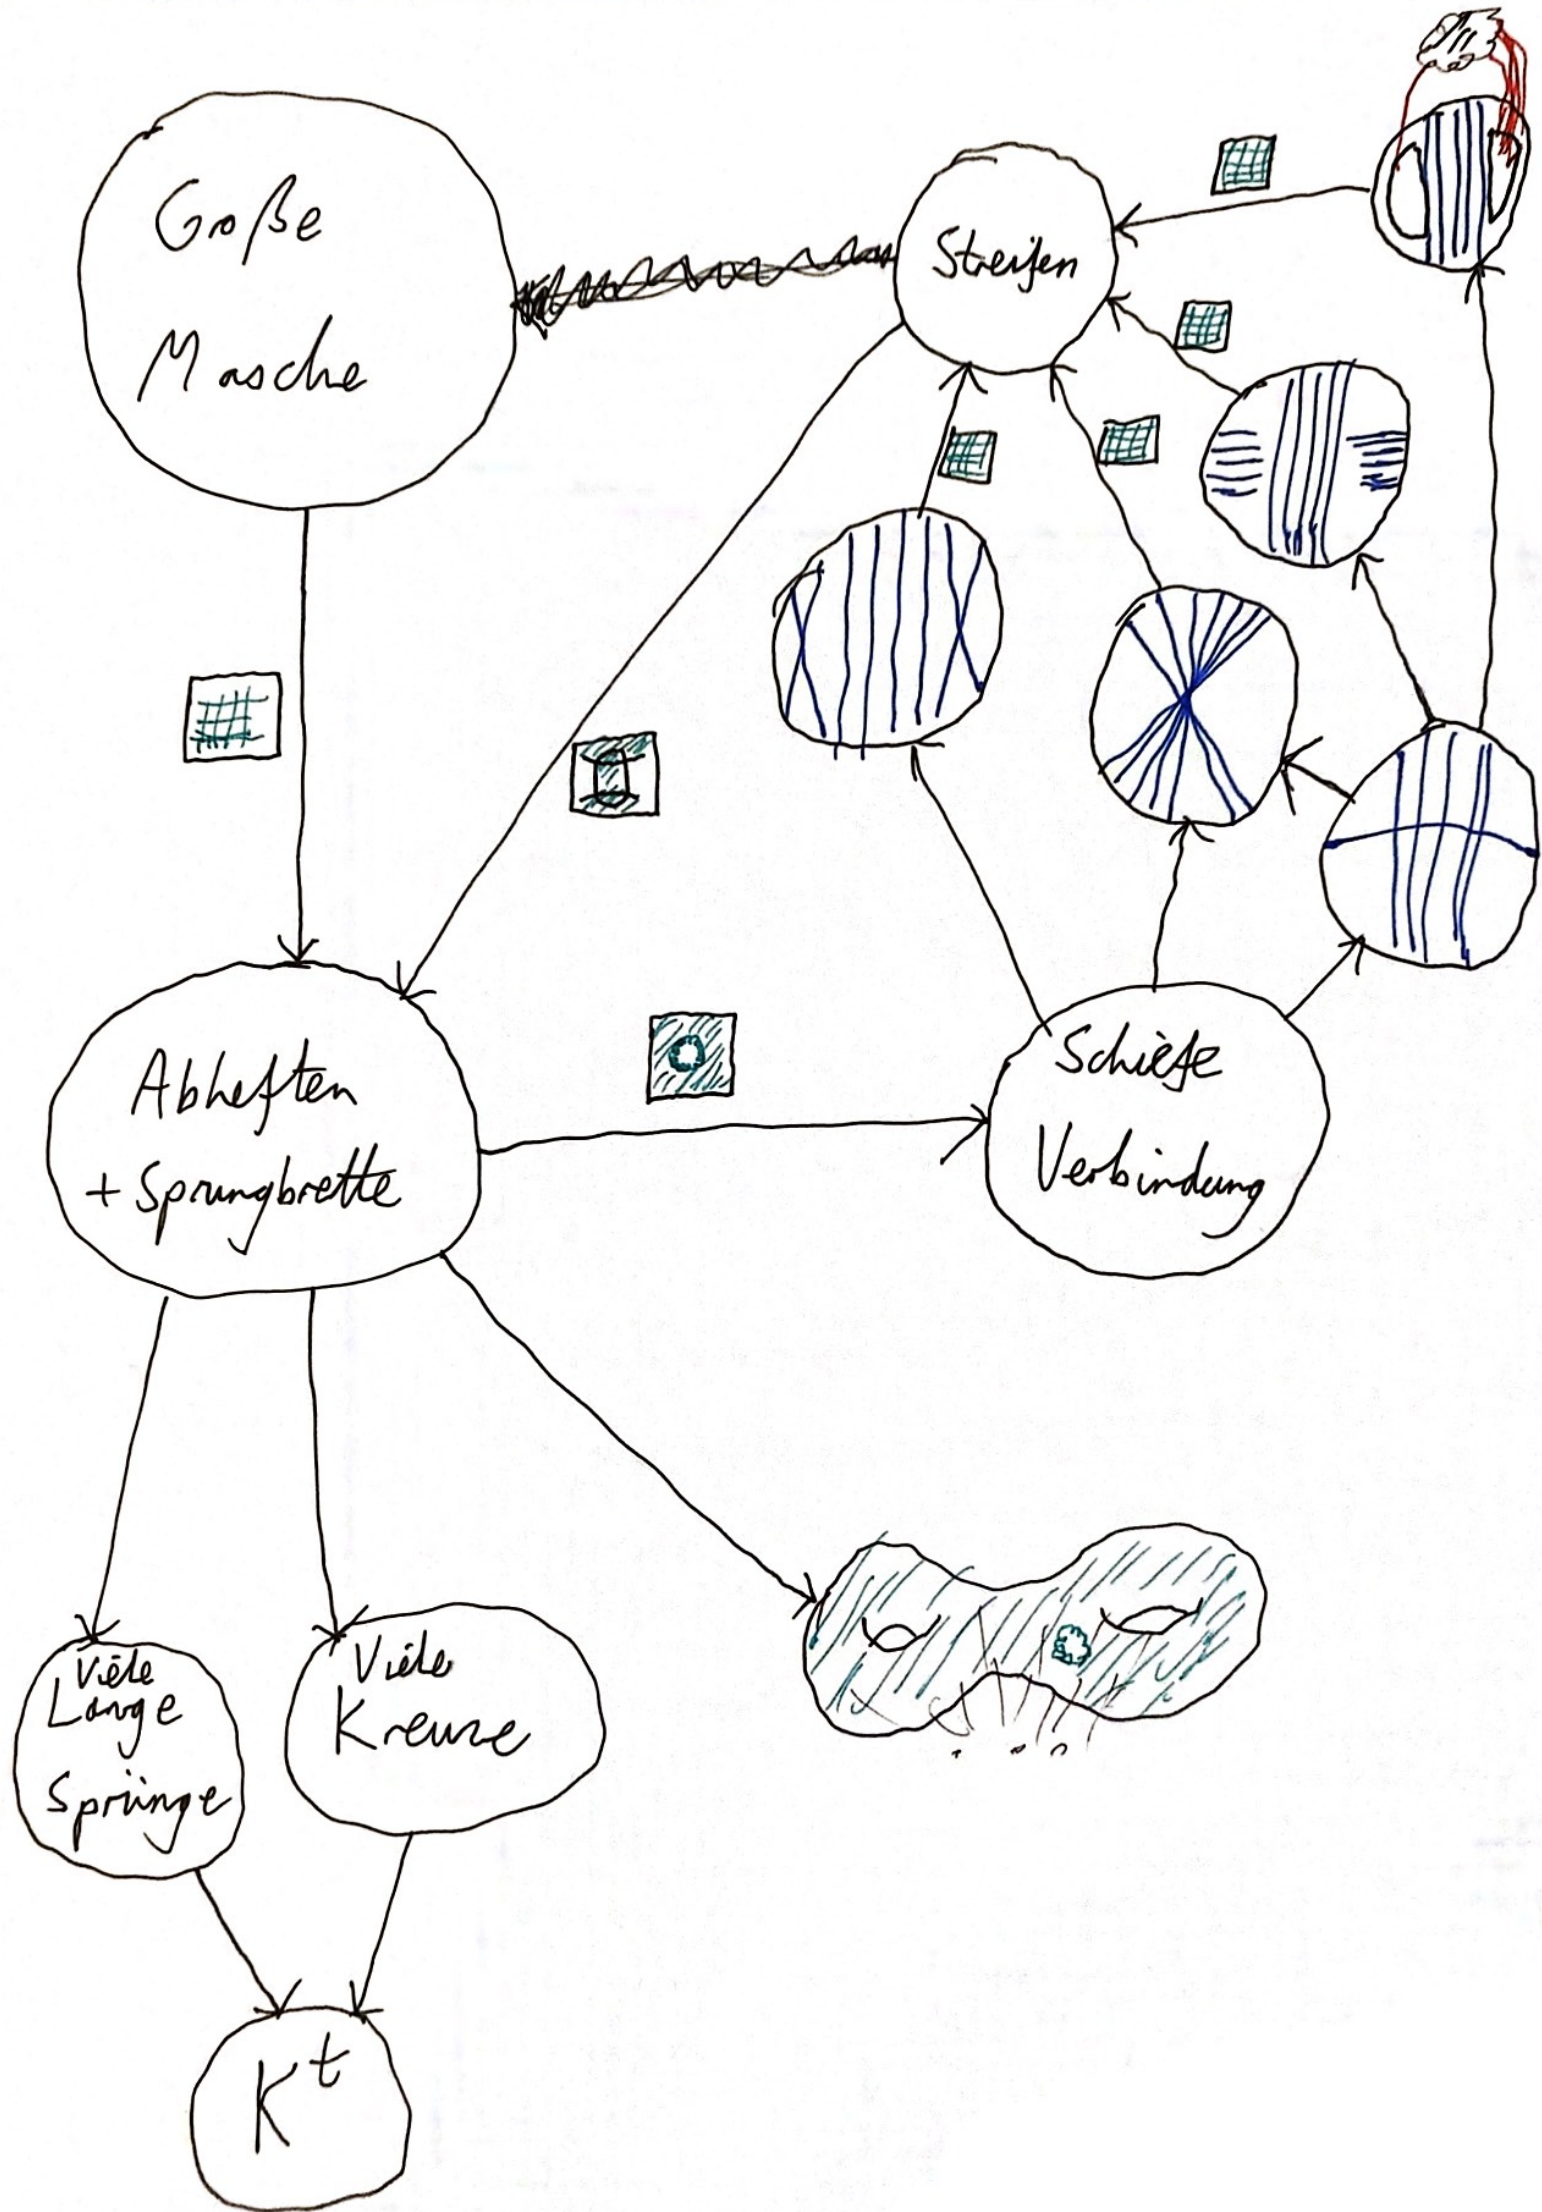 Große
Masche
Streifen
Abheften
+ Sprungbrette
Schiefe
Verbindung
Viele
Lange
Sprünge
Viele
Kreuze
K^t